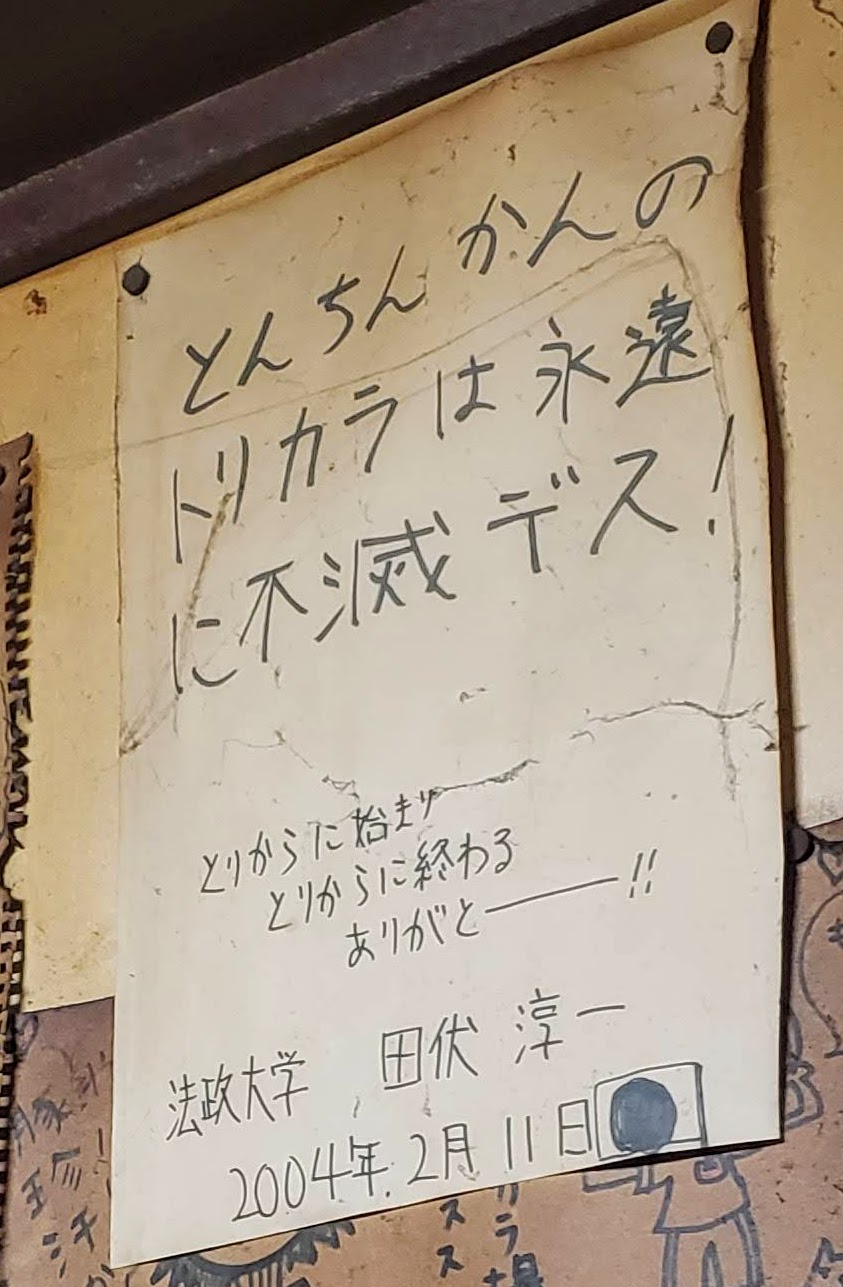 とんちんかんの
トリカラは永遠
に不滅デス!
とりからに始まり
とりからに終わる
ありがと――!!
法政大学 田伏 淳一
2004年.2月11日